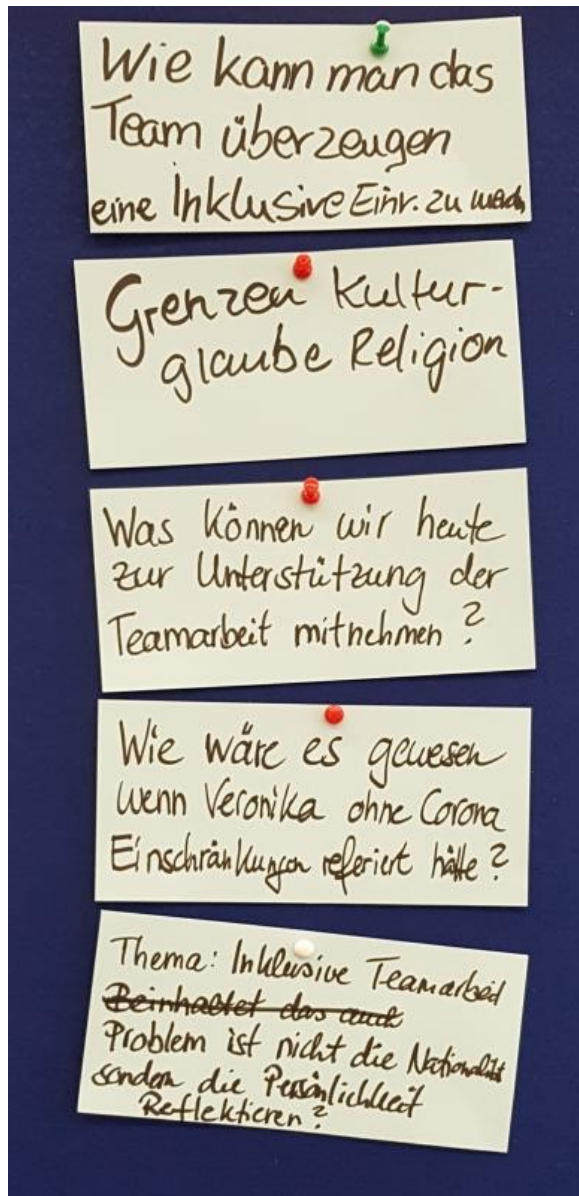 Wie kann man das
Team überzeugen
eine Inklusive Einr. zu mach
Grenzen Kultur-
glaube Religion
Was können wir heute
zur Unterstützung der
Teamarbeit mitnehmen?
Wie wäre es gewesen
wenn Veronika ohne Corona
Einschränkungen referiert hätte?
Thema: Inklusive Teamarbeit
Beinhaltet das auch
Problem ist nicht die Nationalität
sondern die Persönlichkeit
Reflektieren?